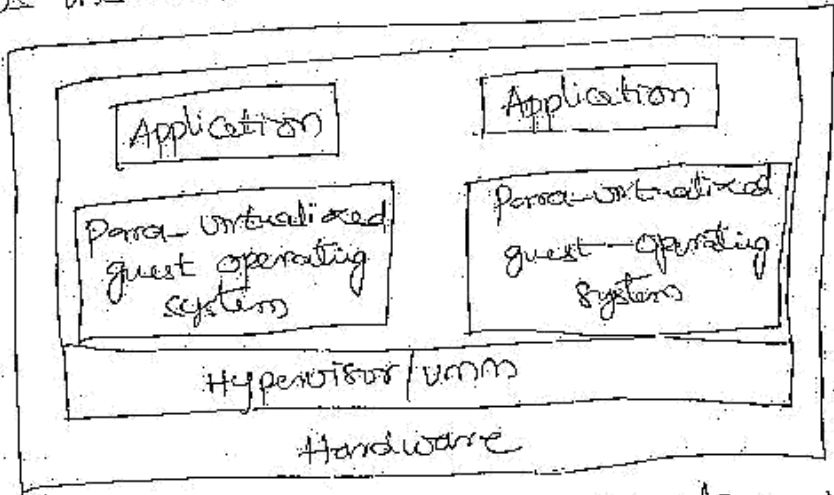 Application
Application
Para-virtualized
guest operating
system
Para-virtualized
guest-operating
system
Hypervisor/VMM
Hardware